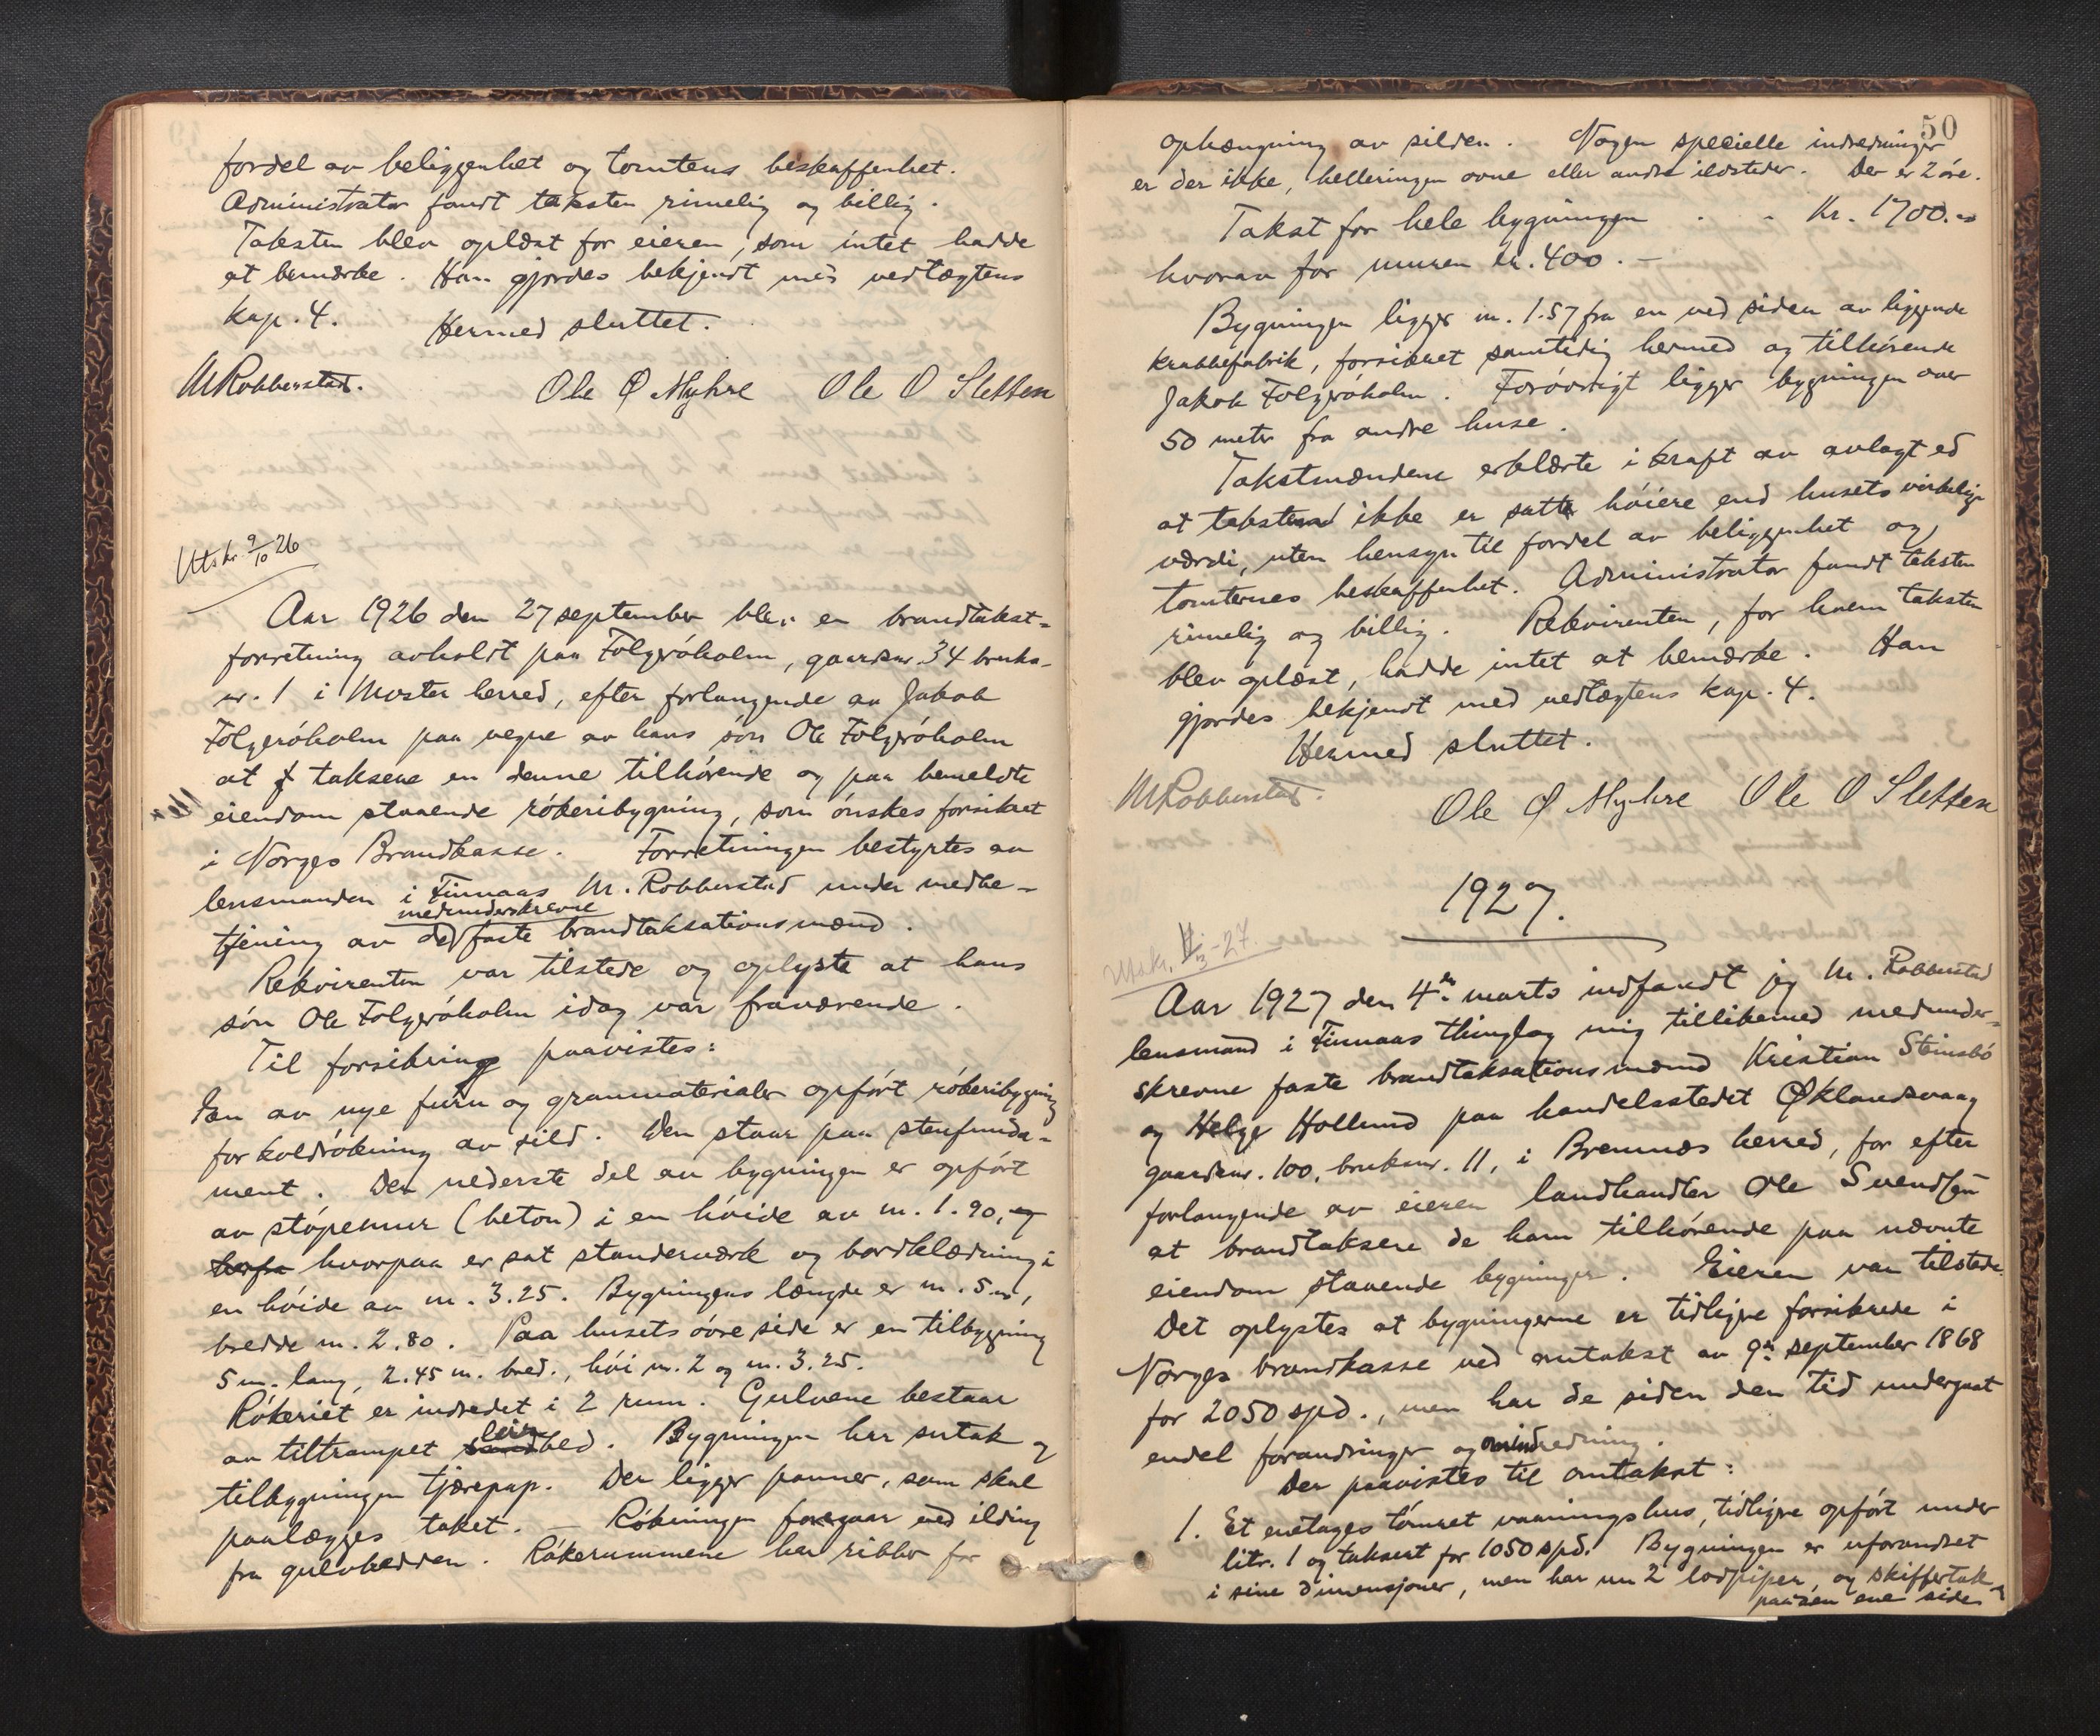 fordel av beliggenhet og tomtens beskaffenhet.
Administrator fandt taksten rimelig og billig.
Taksten blev oplæst for eieren, som intet hadde
at bemærke. Han gjordes bekjendt med vedtægtens
kap. 4. Hermed sluttet.
M Robberstad. Ole Ø Myhre Ole O Sletten
Utskr. 9/10 26
Aar 1926 den 27 september blev en brandtakst-
forretning avholdt paa Folgerøholm, gaardsnr. 34 bruks-
nr. 1 i Moster herred, efter forlangende av Jakob
Folgerøholm paa vegne av hans søn Ole Folgerøholm
at taksere en denne tilhørende og paa bemeldte
eiendom staaende røkeribygning, som ønskes forsikret
i Norges Brandkasse. Forretningen bestyrtes av
lensmanden i Finnaas M. Robberstad under medbe-
medunderskrevne
tjening av de faste brandtaksationsmænd.
Rekvirenten var tilstede og oplyste at hans
søn Ole Folgerøholm idag var fraværende.
Til forsikring paavistes:
En av nye furu og granmaterialer opført røkeribygning
for koldrøkning av sild. Den staar paa stenfunda-
ment. Den nederste del av bygningen er opført
av støpemur (beton) i en høide av m. 1.90, og
herfra hvorpaa er sat standerværk og bordklædning i
en høide av m. 3.25. Bygningens længde er m. 5.00,
bredde m. 2.80. Paa husets øvre side er en tilbygning
5 m. lang, 2.45 m. bred., høi m. 2 og m. 3.25.
Røkeriet er indredet i 2 rum. Gulvene bestaar
leir
av tiltrampet sandbed. Bygningen har sutak og
tilbygningen tjærepap. Der ligger panner, som skal
paalægges taket. — Røkningen foregaar ved ilding
fra gulvbedden. Røkerummene har ribber for
50
ophængning av silden. Nogen specielle indredninger
er der ikke, helleringen ovne eller andre ildsteder. Der er 2 øre.
Takst for hele bygningen . . Kr. 1700.00
hvorav for muren kr. 400.—
Bygningen ligger m. 1.57 fra en ved siden av liggende
krabbefabrik, forsikret samtidig hermed og tilhørende
Jakob Folgerøholm. Forøvrigt ligger bygningen over
50 meter fra andre huse.
Takstmændene erklærte i kraft av avlagt ed
at taksten ikke er satt høiere end husets virkelige
værdi, uten hensyn til fordel av beliggenhet og
tomternes beskaffenhet. Administrator fandt taksten
rimelig og billig. Rekvirenten, for hvem taksten
blev oplæst, hadde intet at bemærke. Han
gjordes bekjendt med vedtægtens kap. 4.
Hermed sluttet.
M Robberstad. Ole Ø Myhre Ole O Sletten
1927.
Utskr. /3-27.
Aar 1927 den 4de marts indfandt jeg M. Robberstad
lensmand i Finnaas thinglag mig tillikemed medunder-
skrevne faste brandtaksationsmænd Kristian Steinsbø
og Helge Hollund paa handelsstedet Øklandsvaag
gaardsnr. 100, bruksnr. 11, i Bremnes herred, for efter
forlangende av eieren landhandler Ole Svendsen
at brandtaksere de ham tilhørende paa nævnte
eiendom staaende bygninger. Eieren var tilstede.
Det oplystes at bygningerne er tidligre forsikrede i
Norges brandkasse ved omtakst av 9de september 1868
for 2050 spd., men har de siden den tid undergaat
endel forandringer og omindredning.
Der paavistes til omtakst:
1. Et enetages tømret vaaningshus, tidligre opført under
litr. 1 og taksert for 1050 spd. Bygningen er uforandret
i sine dimensjoner, men har nu 2 lodpiper, og skiffertak
paa den ene side